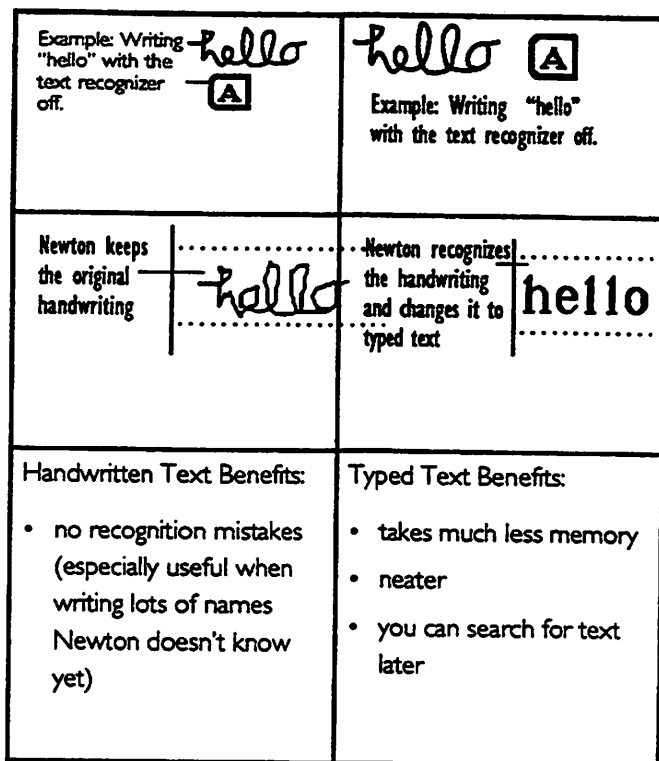 Example: Writing
"hello" with the
text recognizer
off.
hello
A
hello
A
Example: Writing "hello"
with the text recognizer off.
Newton keeps
the original
handwriting
hello
Newton recognizes
the handwriting
and changes it to
typed text
hello
Handwritten Text Benefits:
• no recognition mistakes
(especially useful when
writing lots of names
Newton doesn't know
yet)
Typed Text Benefits:
• takes much less memory
• neater
• you can search for text
later